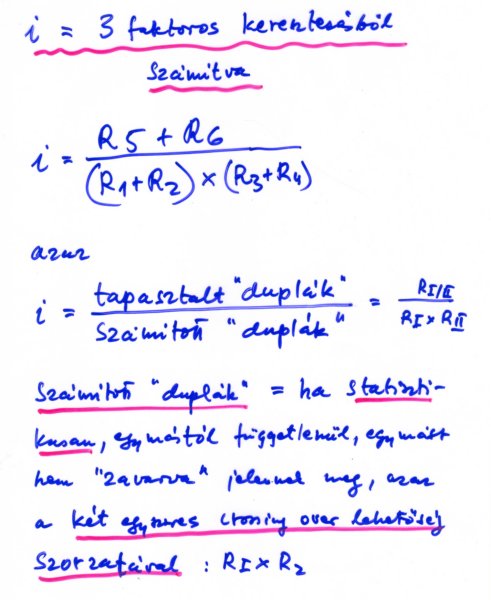 i = 3 faktoros keresztezésből
számítva
i = R5 + R6 / (R1+R2) × (R3+R4)
azaz
i = tapasztalt "duplák" / számított "duplák" = RI/II / RI × RII
Számított "duplák" = ha statiszti-
kusan, egymástól függetlenül, egymást
nem "zavarva" jelennek meg, azaz
a két egyszeres crossing over lehetőség
szorzatával : RI × R2